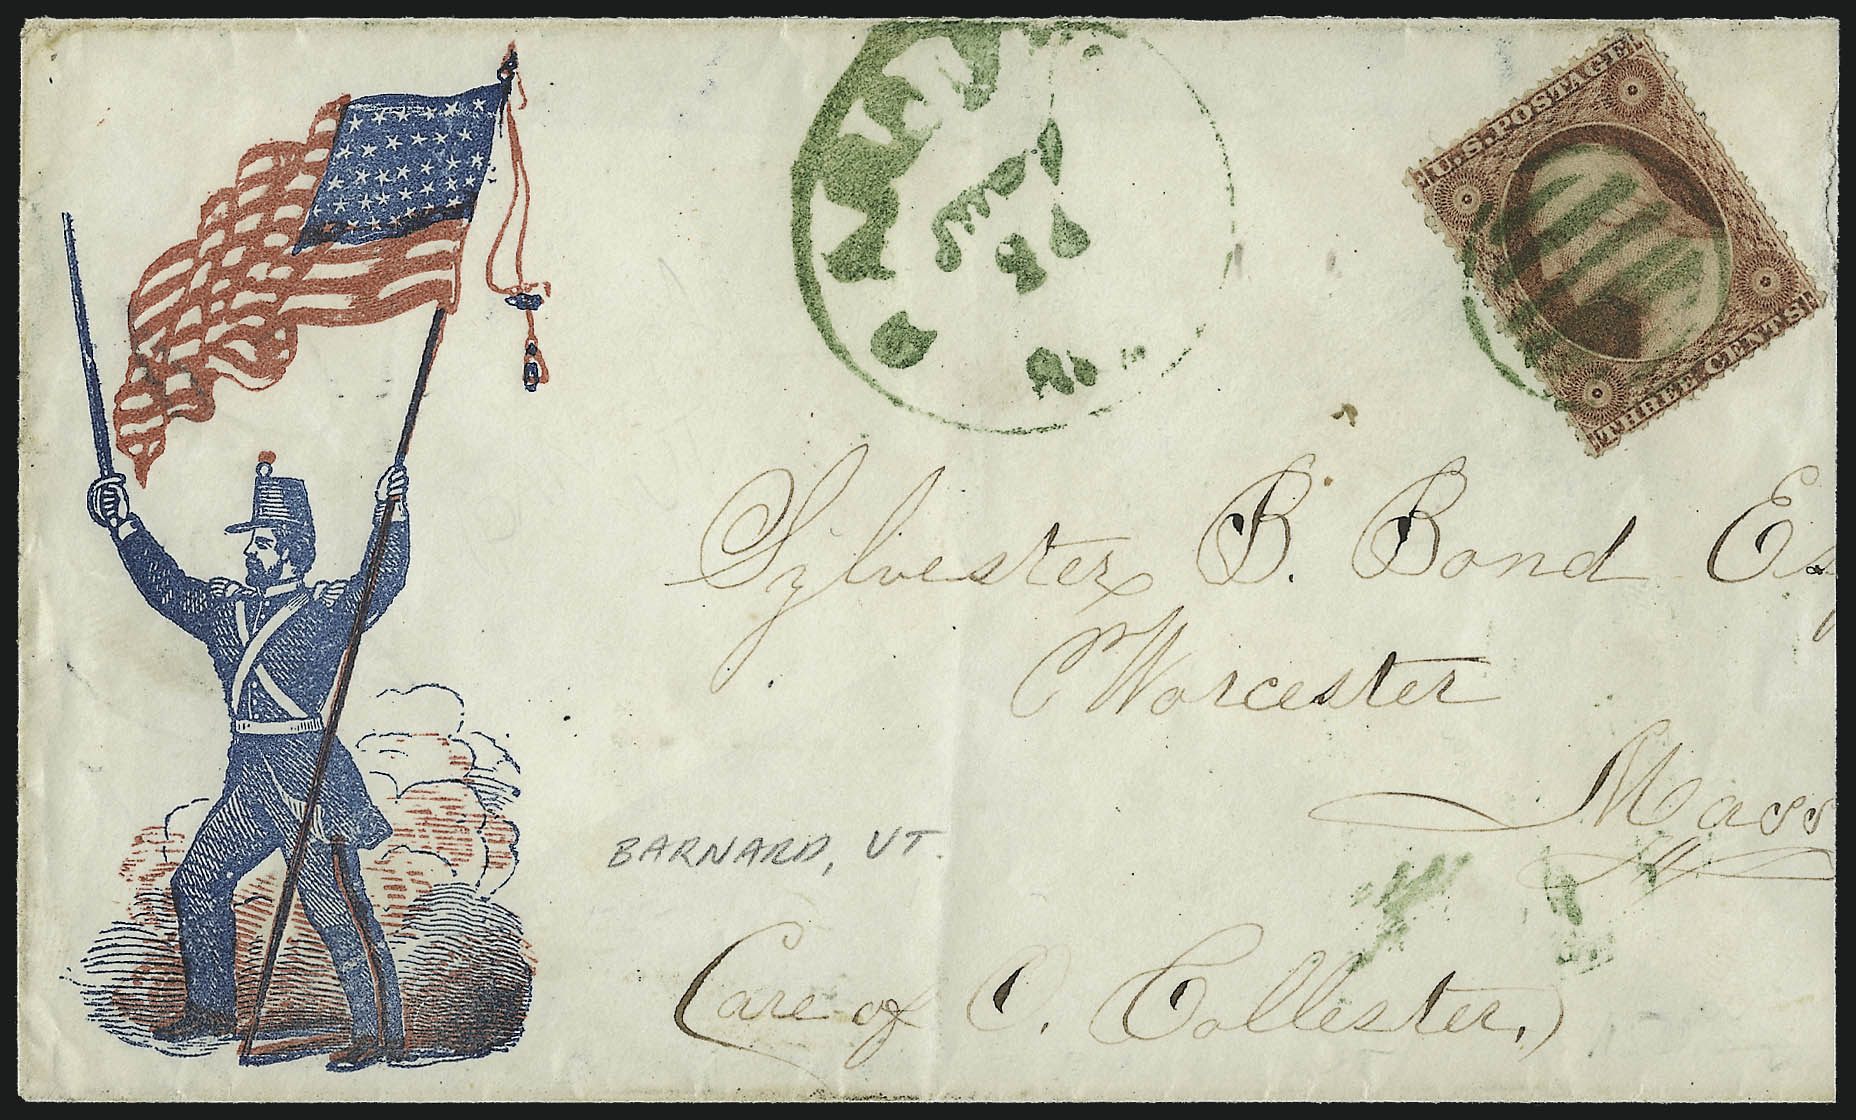 U.S. POSTAGE
THREE CENTS
Sylvester B. Bond Esq
Worcester
Mass
BARNARD, VT.
(Care of O. Collester.)